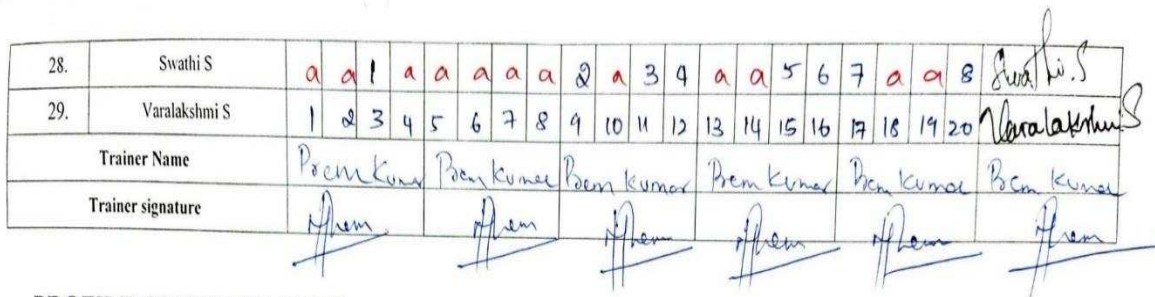 28. Swathi S a a 1 a a a a a 2 a 3 4 a a 5 6 7 a a 8 Swathi.S
29. Varalakshmi S 1 2 3 4 5 6 7 8 9 10 11 12 13 14 15 16 17 18 19 20 Varalakshmi S
Trainer Name Prem Kumar Prem Kumar Prem Kumar Prem Kumar Prem Kumar Prem Kumar
Trainer signature Prem Prem Prem Prem Prem Prem